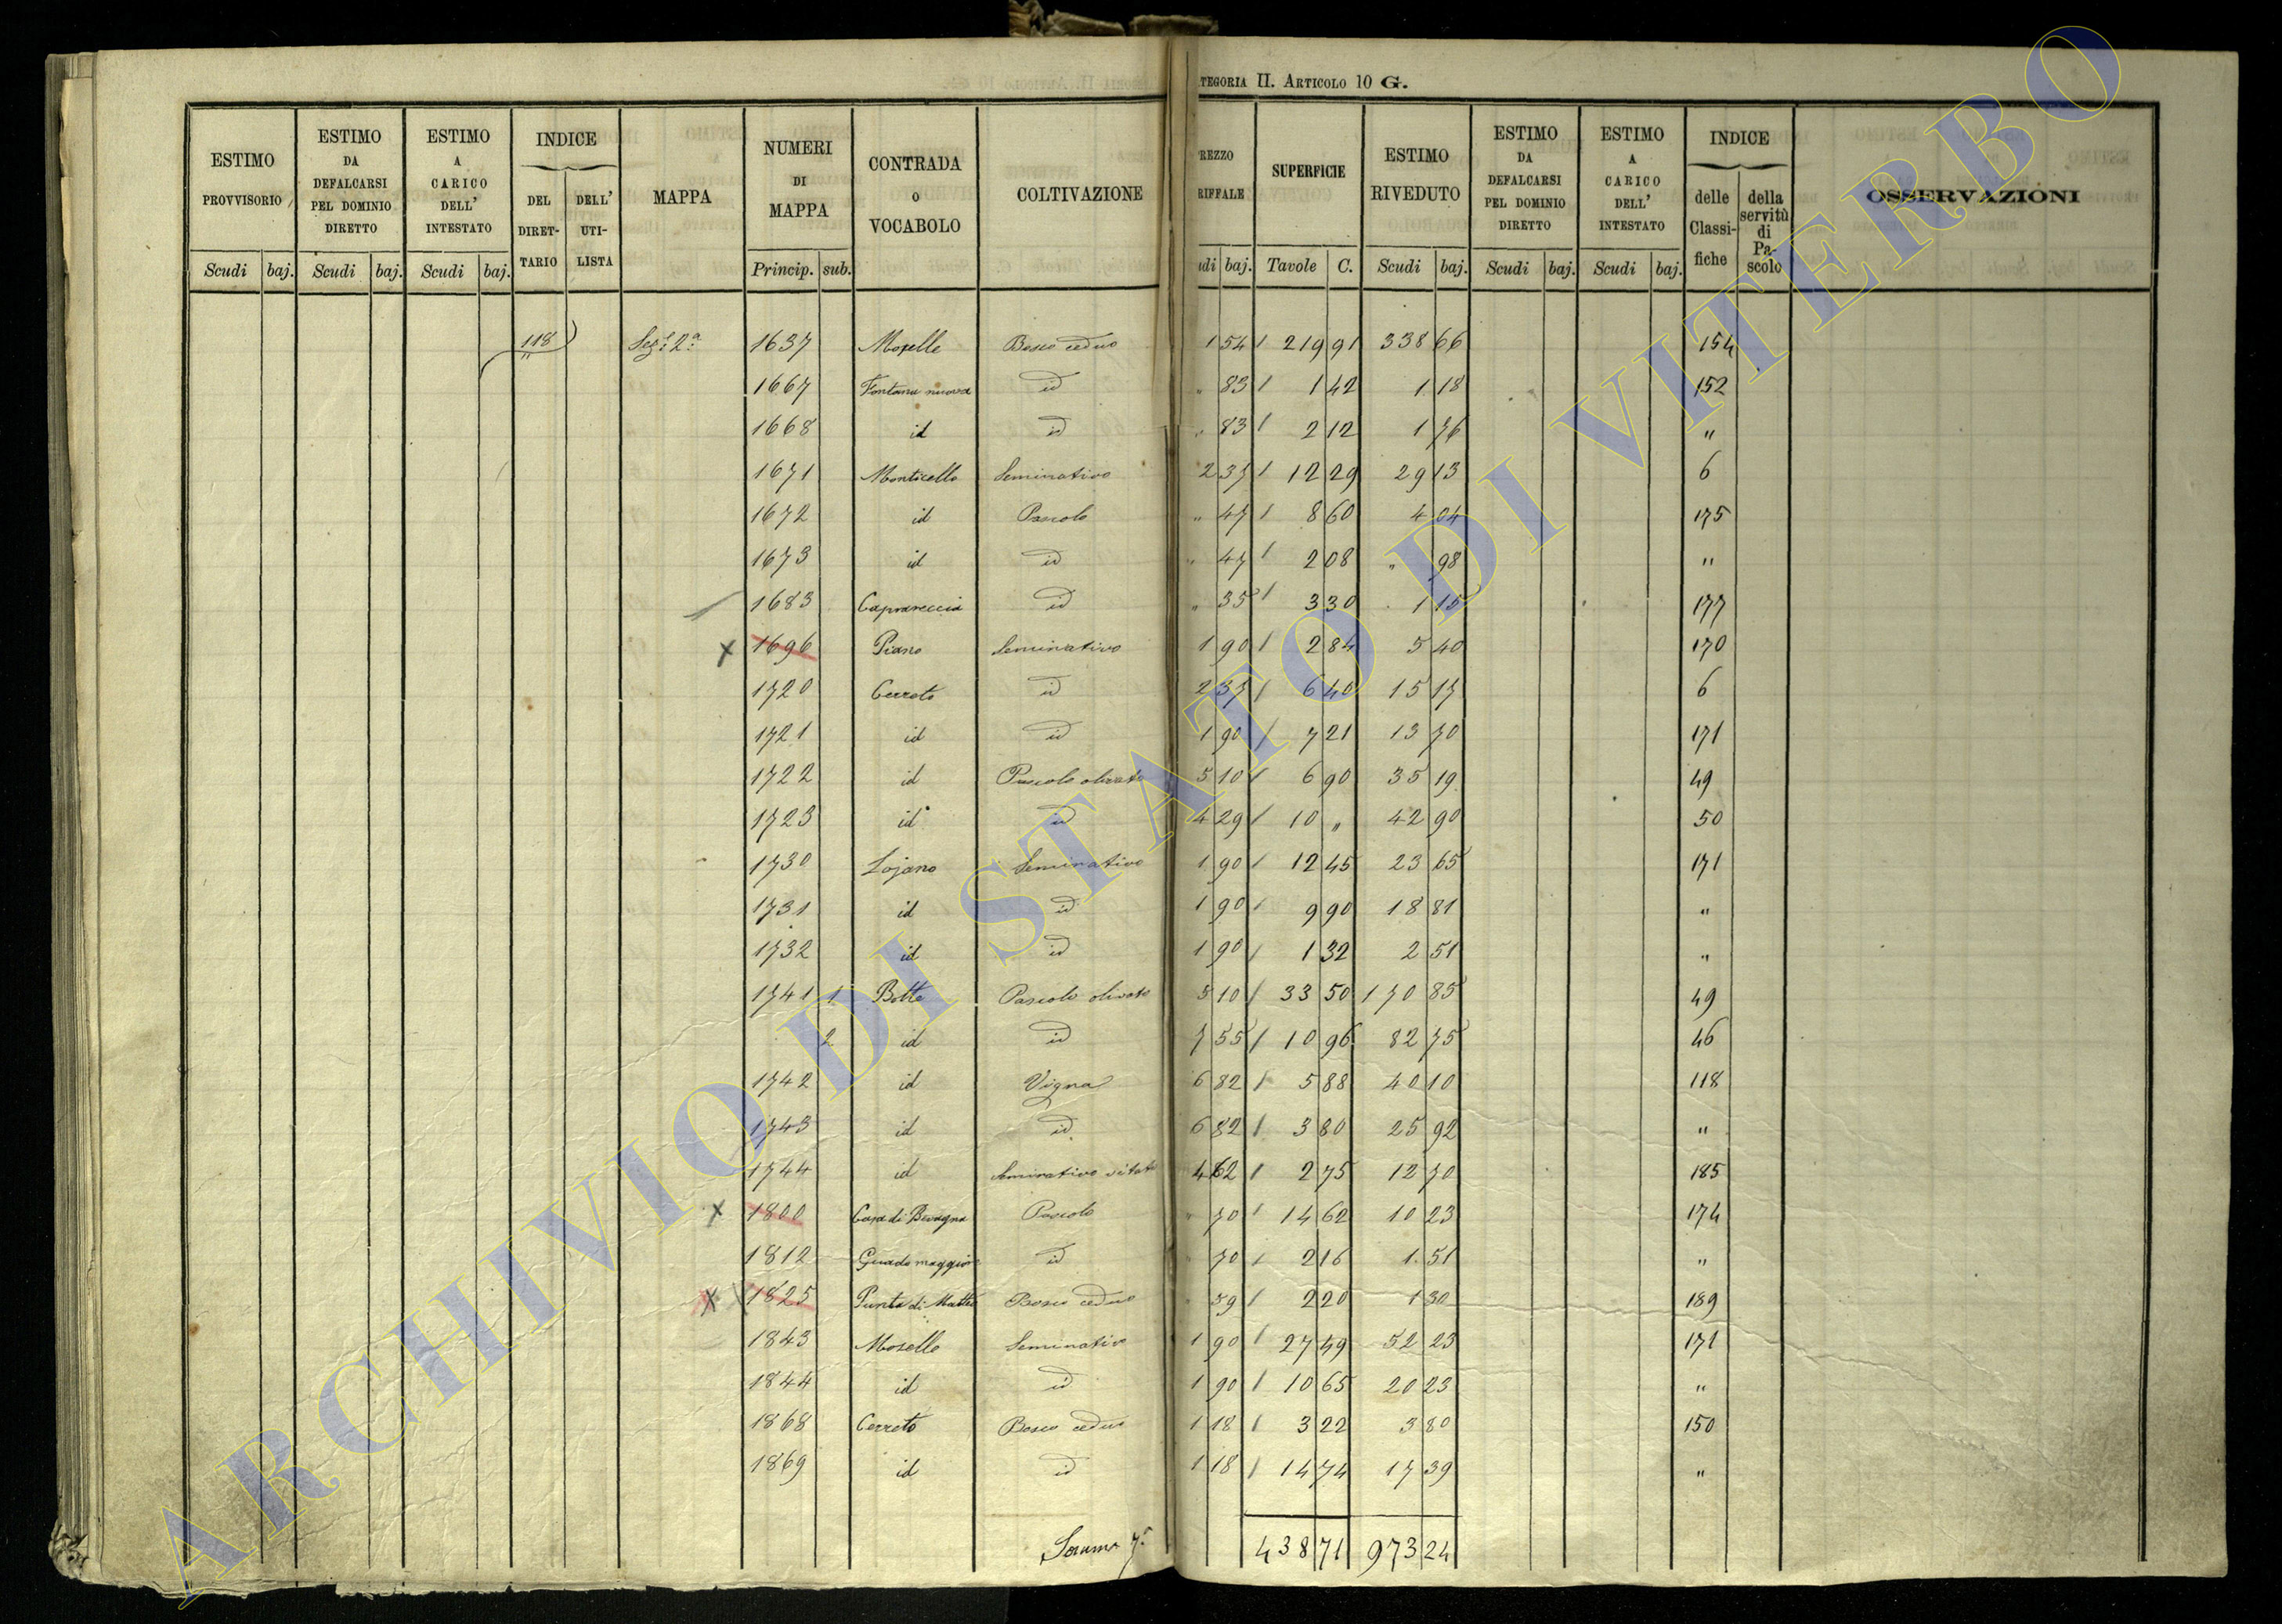 TEGORIA II. ARTICOLO 10 G.
ESTIMO PROVVISORIO
ESTIMO DA DEFALCARSI PEL DOMINIO DIRETTO
ESTIMO A CARICO DELL' INTESTATO
INDICE
DEL DIRETTARIO
DELL' UTILISTA
MAPPA
NUMERI DI MAPPA
CONTRADA o VOCABOLO
COLTIVAZIONE
REZZO RIFFALE
SUPERFICIE
ESTIMO RIVEDUTO
ESTIMO DA DEFALCARSI PEL DOMINIO DIRETTO
ESTIMO A CARICO DELL' INTESTATO
INDICE
delle Classifiche
della servitù di Pascolo
OSSERVAZIONI
Scudi baj. Scudi baj. Scudi baj. Princip. sub. udi baj. Tavole C. Scudi baj. Scudi baj. Scudi baj.
118 Sez. 2a 1637 Bosco ceduo 1 54 219 91 338 66 154
1667 Fontana nuova id " 83 1 42 1 18 152
1668 id id " 83 2 12 1 76 "
1671 Monticello Seminativo 2 37 12 29 29 13 6
1672 id Pascolo " 47 8 60 4 04 175
1673 id id " 47 2 08 " 98 "
1683 Caprareccia id " 35 3 30 1 15 177
x 1696 Piano Seminativo 1 90 2 84 5 40 170
1720 Cerreto id 2 37 6 40 15 17 6
1721 id id 1 90 7 21 13 70 171
1722 id Pascolo olivato 5 10 6 90 35 19 49
1723 id id 4 29 10 " 42 90 50
1730 Lojano Seminativo 1 90 12 45 23 65 171
1731 id id 1 90 9 90 18 81 "
1732 id id 1 90 1 32 2 51 "
1741 1 Botte Pascolo olivato 5 10 33 50 170 85 49
2 id id 7 55 10 96 82 75 46
1742 id Vigna 6 82 5 88 40 10 118
1743 id id 6 82 3 80 25 92 "
1744 id Seminativo vitato 4 62 2 75 12 70 185
x 1800 Casa di Bevagna Pascolo " 70 14 62 10 23 174
1812 Guado maggiore id " 70 2 16 1 51 "
x 1825 Punta di Matteo Bosco ceduo 59 2 20 1 30 189
1843 Moselle Seminativo 1 90 27 49 52 23 171
1844 id id 1 90 10 65 20 23 "
1868 Cerreto Bosco ceduo 1 18 3 22 3 80 150
1869 id id 1 18 14 74 17 39 "
Somma 438 71 973 24
ARCHIVIO DI STATO DI VITERBO